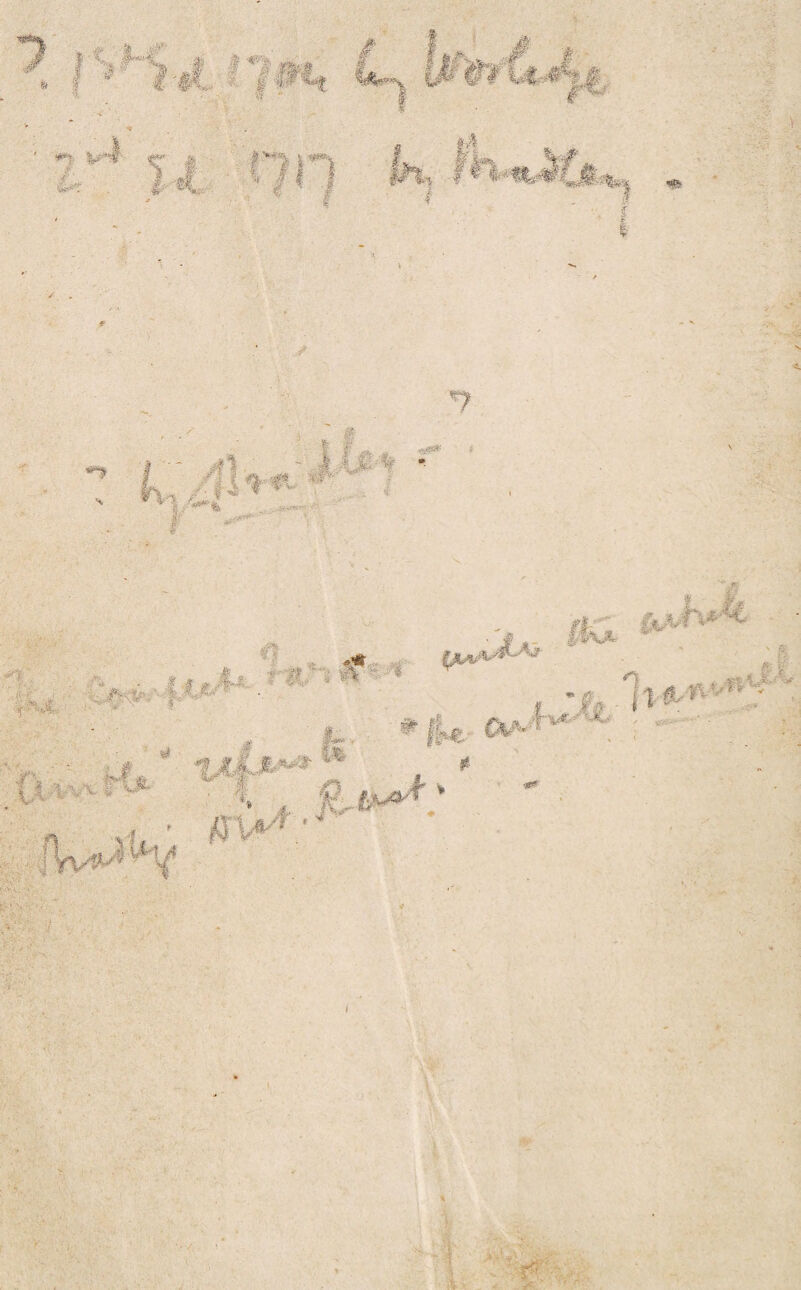 ? 1st Ed 1704 by Worlidge
2nd Ed 1717 by Bradley -
?
? by Bradley -
The Complete Farmer under the article
Amble" refers to "the article Trammel
Bradley's Dict. Rust." -